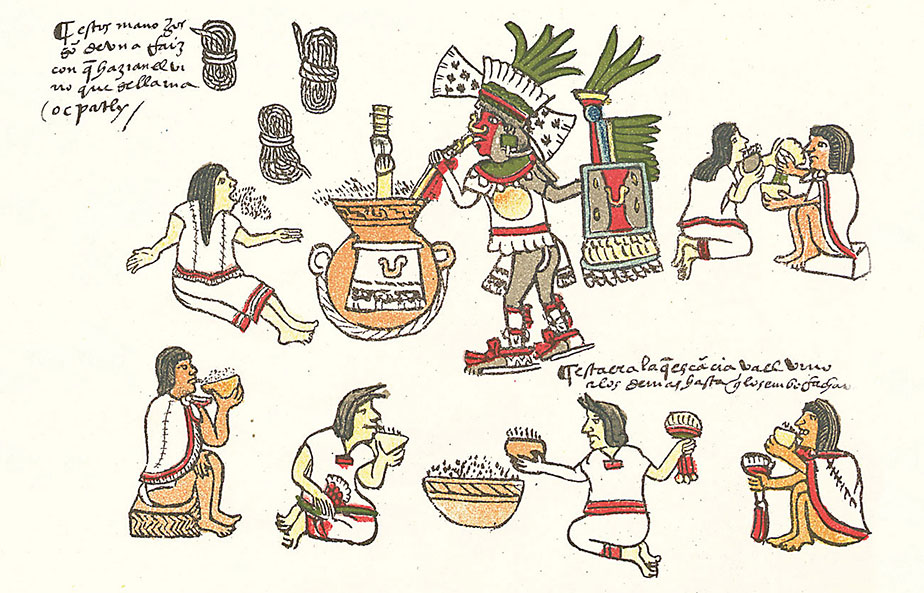 ¶ estos mano Jos
sō de vna Raiz
con q̄ hazian el vi
no que se llama
ocpatly /
¶ esta era la q̄ escācia va el vino
a los demas hasta q̄ los embo